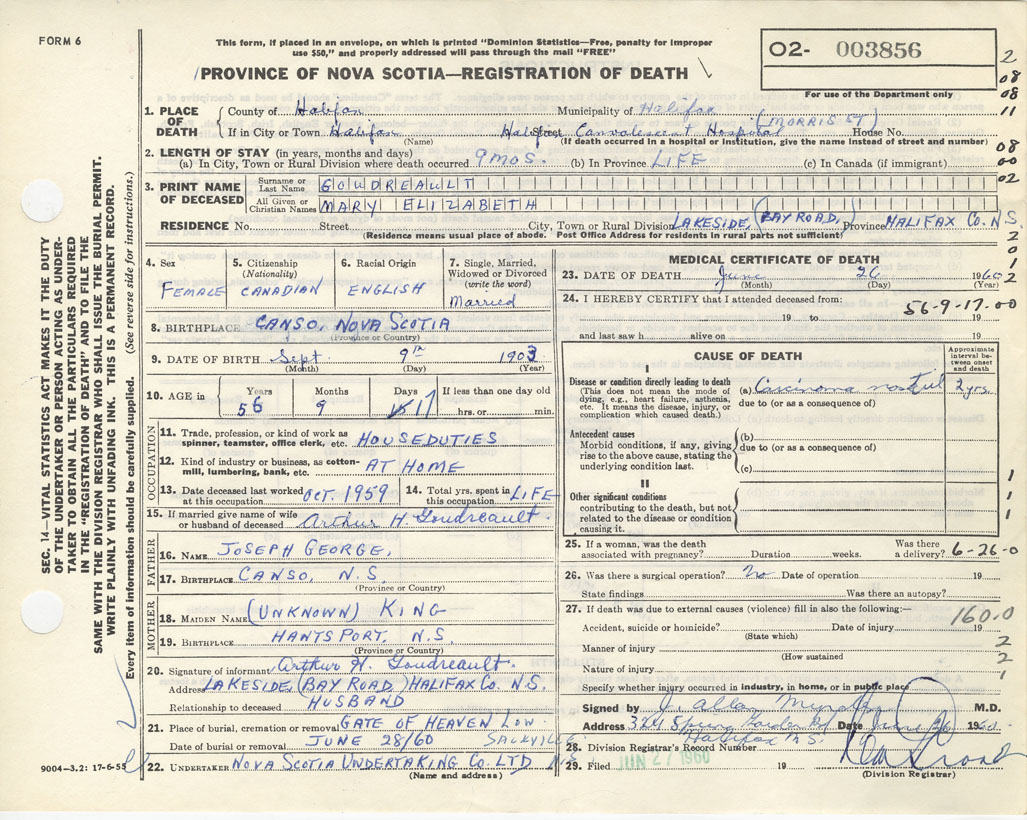 FORM 6
This form, if placed in an envelope, on which is printed "Dominion Statistics—Free, penalty for improper
use $50," and properly addressed will pass through the mail "FREE"
PROVINCE OF NOVA SCOTIA—REGISTRATION OF DEATH
O2- 003856
For use of the Department only
2
08
08
11
08
00
02
2
0
1
2
SEC. 14—VITAL STATISTICS ACT MAKES IT THE DUTY
OF THE UNDERTAKER OR PERSON ACTING AS UNDER-
TAKER TO OBTAIN ALL THE PARTICULARS REQUIRED
IN THE "REGISTRATION OF DEATH" AND TO FILE THE
SAME WITH THE DIVISION REGISTRAR WHO SHALL ISSUE THE BURIAL PERMIT.
WRITE PLAINLY WITH UNFADING INK. THIS IS A PERMANENT RECORD.
Every item of information should be carefully supplied. (See reverse side for instructions.)
1. PLACE OF DEATH
County of Halifax Municipality of Halifax
(MORRIS ST)
If in City or Town Halifax Street Convalescent Hospital House No.
(Name) (If death occurred in a hospital or institution, give the name instead of street and number)
2. LENGTH OF STAY (in years, months and days)
(a) In City, Town or Rural Division where death occurred. 9 MOS. (b) In Province LIFE (c) In Canada (if immigrant)
3. PRINT NAME OF DECEASED
Surname or Last Name GOUDREAULT
All Given or Christian Names MARY ELIZABETH
RESIDENCE No. Street City, Town or Rural Division LAKESIDE, (BAY ROAD,) Province HALIFAX CO. N.S.
(Residence means usual place of abode. Post Office Address for residents in rural parts not sufficient)
4. Sex FEMALE
5. Citizenship (Nationality) CANADIAN
6. Racial Origin ENGLISH
7. Single, Married, Widowed or Divorced (write the word) Married
8. BIRTHPLACE CANSO, NOVA SCOTIA
(Province or Country)
9. DATE OF BIRTH Sept. 9th 1903
(Month) (Day) (Year)
10. AGE in Years 56 Months 9 Days 17 If less than one day old hrs. or min.
OCCUPATION
11. Trade, profession, or kind of work as spinner, teamster, office clerk, etc. HOUSEDUTIES
12. Kind of industry or business, as cotton-mill, lumbering, bank, etc. AT HOME
13. Date deceased last worked at this occupation OCT. 1959
14. Total yrs. spent in this occupation LIFE
15. If married give name of wife or husband of deceased Arthur H Goudreault
FATHER
16. NAME JOSEPH GEORGE,
17. BIRTHPLACE CANSO, N.S.
(Province or Country)
MOTHER
18. MAIDEN NAME (UNKNOWN) KING
19. BIRTHPLACE HANTSPORT, N.S.
(Province or Country)
20. Signature of informant Arthur H. Goudreault.
Address LAKESIDE (BAY ROAD) HALIFAX CO. N.S.
Relationship to deceased HUSBAND
21. Place of burial, cremation or removal GATE OF HEAVEN LOW.
SACKVILLE
Date of burial or removal JUNE 28/60
22. UNDERTAKER NOVA SCOTIA UNDERTAKING CO. LTD N.S.
(Name and address)
9004-3.2: 17-6-55
MEDICAL CERTIFICATE OF DEATH
23. DATE OF DEATH June 26 1960
(Month) (Day) (Year)
24. I HEREBY CERTIFY that I attended deceased from:
56-9-17-00
19 to 19
and last saw h alive on 19
CAUSE OF DEATH
Approximate interval between onset and death
I
Disease or condition directly leading to death
(This does not mean the mode of dying, e.g., heart failure, asthenia, etc. It means the disease, injury, or complication which caused death.)
(a) Carcinoma 2 yrs.
due to (or as a consequence of)
Antecedent causes
Morbid conditions, if any, giving rise to the above cause, stating the underlying condition last.
(b)
due to (or as a consequence of)
(c)
II
Other significant conditions
contributing to the death, but not related to the disease or condition causing it.
1
1
1
25. If a woman, was the death associated with pregnancy? Duration weeks. Was there a delivery? 6-26-0
26. Was there a surgical operation? No Date of operation 19
State findings Was there an autopsy?
27. If death was due to external causes (violence) fill in also the following:—
160.0
Accident, suicide or homicide? Date of injury 19
(State which)
2
Manner of injury
(How sustained)
2
Nature of injury
1
Specify whether injury occurred in industry, in home, or in public place
Signed by J. Allan M.D.
Address 324 Spring Garden Rd Date June 26 1960
Halifax N.S.
28. Division Registrar's Record Number
29. Filed JUN 27 1960 19
(Division Registrar)